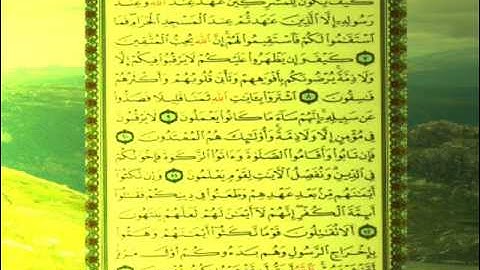 كَيْفَ يَكُونُ لِلْمُشْرِكِينَ عَهْدٌ عِندَ اللَّهِ وَعِندَ
رَسُولِهِ إِلَّا الَّذِينَ عَٰهَدتُّمْ عِندَ الْمَسْجِدِ الْحَرَامِ فَمَا
اسْتَقَٰمُوا لَكُمْ فَاسْتَقِيمُوا لَهُمْ إِنَّ اللَّهَ يُحِبُّ الْمُتَّقِينَ
٧ كَيْفَ وَإِن يَظْهَرُوا عَلَيْكُمْ لَا يَرْقُبُوا فِيكُمْ إِلًّا
وَلَا ذِمَّةً يُرْضُونَكُم بِأَفْوَٰهِهِمْ وَتَأْبَىٰ قُلُوبُهُمْ وَأَكْثَرُهُمْ
فَٰسِقُونَ ٨ اشْتَرَوْا بِـَٔايَٰتِ اللَّهِ ثَمَنًا قَلِيلًا فَصَدُّوا
عَن سَبِيلِهِ إِنَّهُمْ سَاءَ مَا كَانُوا يَعْمَلُونَ ٩ لَا يَرْقُبُونَ
فِي مُؤْمِنٍ إِلًّا وَلَا ذِمَّةً وَأُولَٰئِكَ هُمُ الْمُعْتَدُونَ ١٠
فَإِن تَابُوا وَأَقَامُوا الصَّلَوٰةَ وَءَاتَوُا الزَّكَوٰةَ فَإِخْوَٰنُكُمْ
فِي الدِّينِ وَنُفَصِّلُ الْـَٔايَٰتِ لِقَوْمٍ يَعْلَمُونَ ١١ وَإِن نَّكَثُوا
أَيْمَٰنَهُم مِّن بَعْدِ عَهْدِهِمْ وَطَعَنُوا فِي دِينِكُمْ فَقَٰتِلُوا
أَئِمَّةَ الْكُفْرِ إِنَّهُمْ لَا أَيْمَٰنَ لَهُمْ لَعَلَّهُمْ يَنتَهُونَ
١٢ أَلَا تُقَٰتِلُونَ قَوْمًا نَّكَثُوا أَيْمَٰنَهُمْ وَهَمُّوا
بِإِخْرَاجِ الرَّسُولِ وَهُم بَدَءُوكُمْ أَوَّلَ مَرَّةٍ